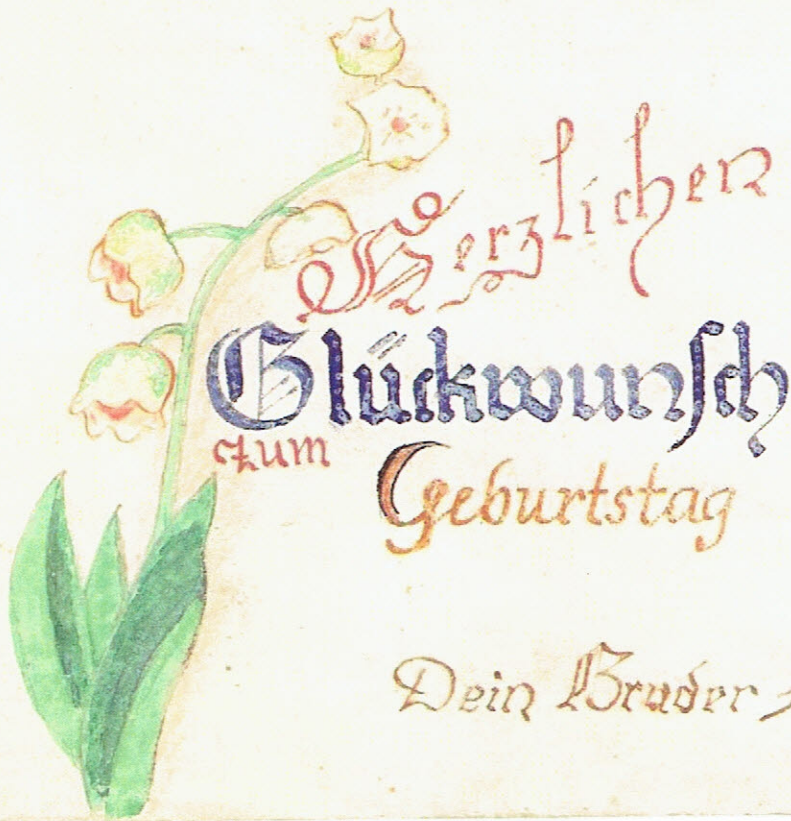 Herzlichen
Glückwunsch
zum
Geburtstag
Dein Bruder